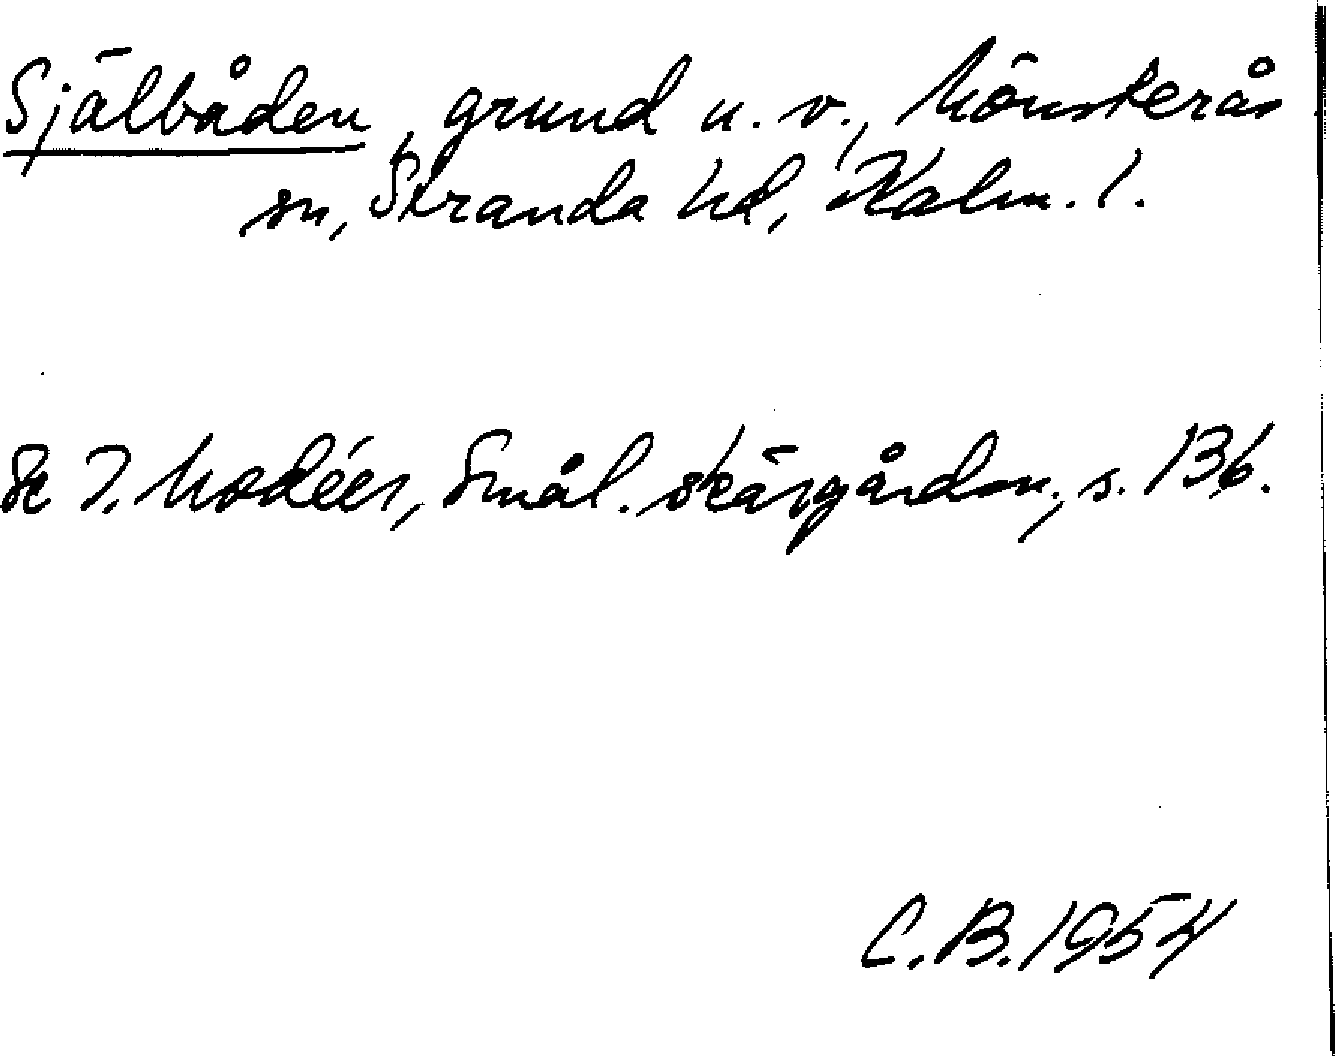 Själbåden, grund u. v., Mönsterås
sn, Stranda hd, Kalm. l.
Se I. Modéer, Smål. skärgårdsn., s. 136.
C. B. 1954